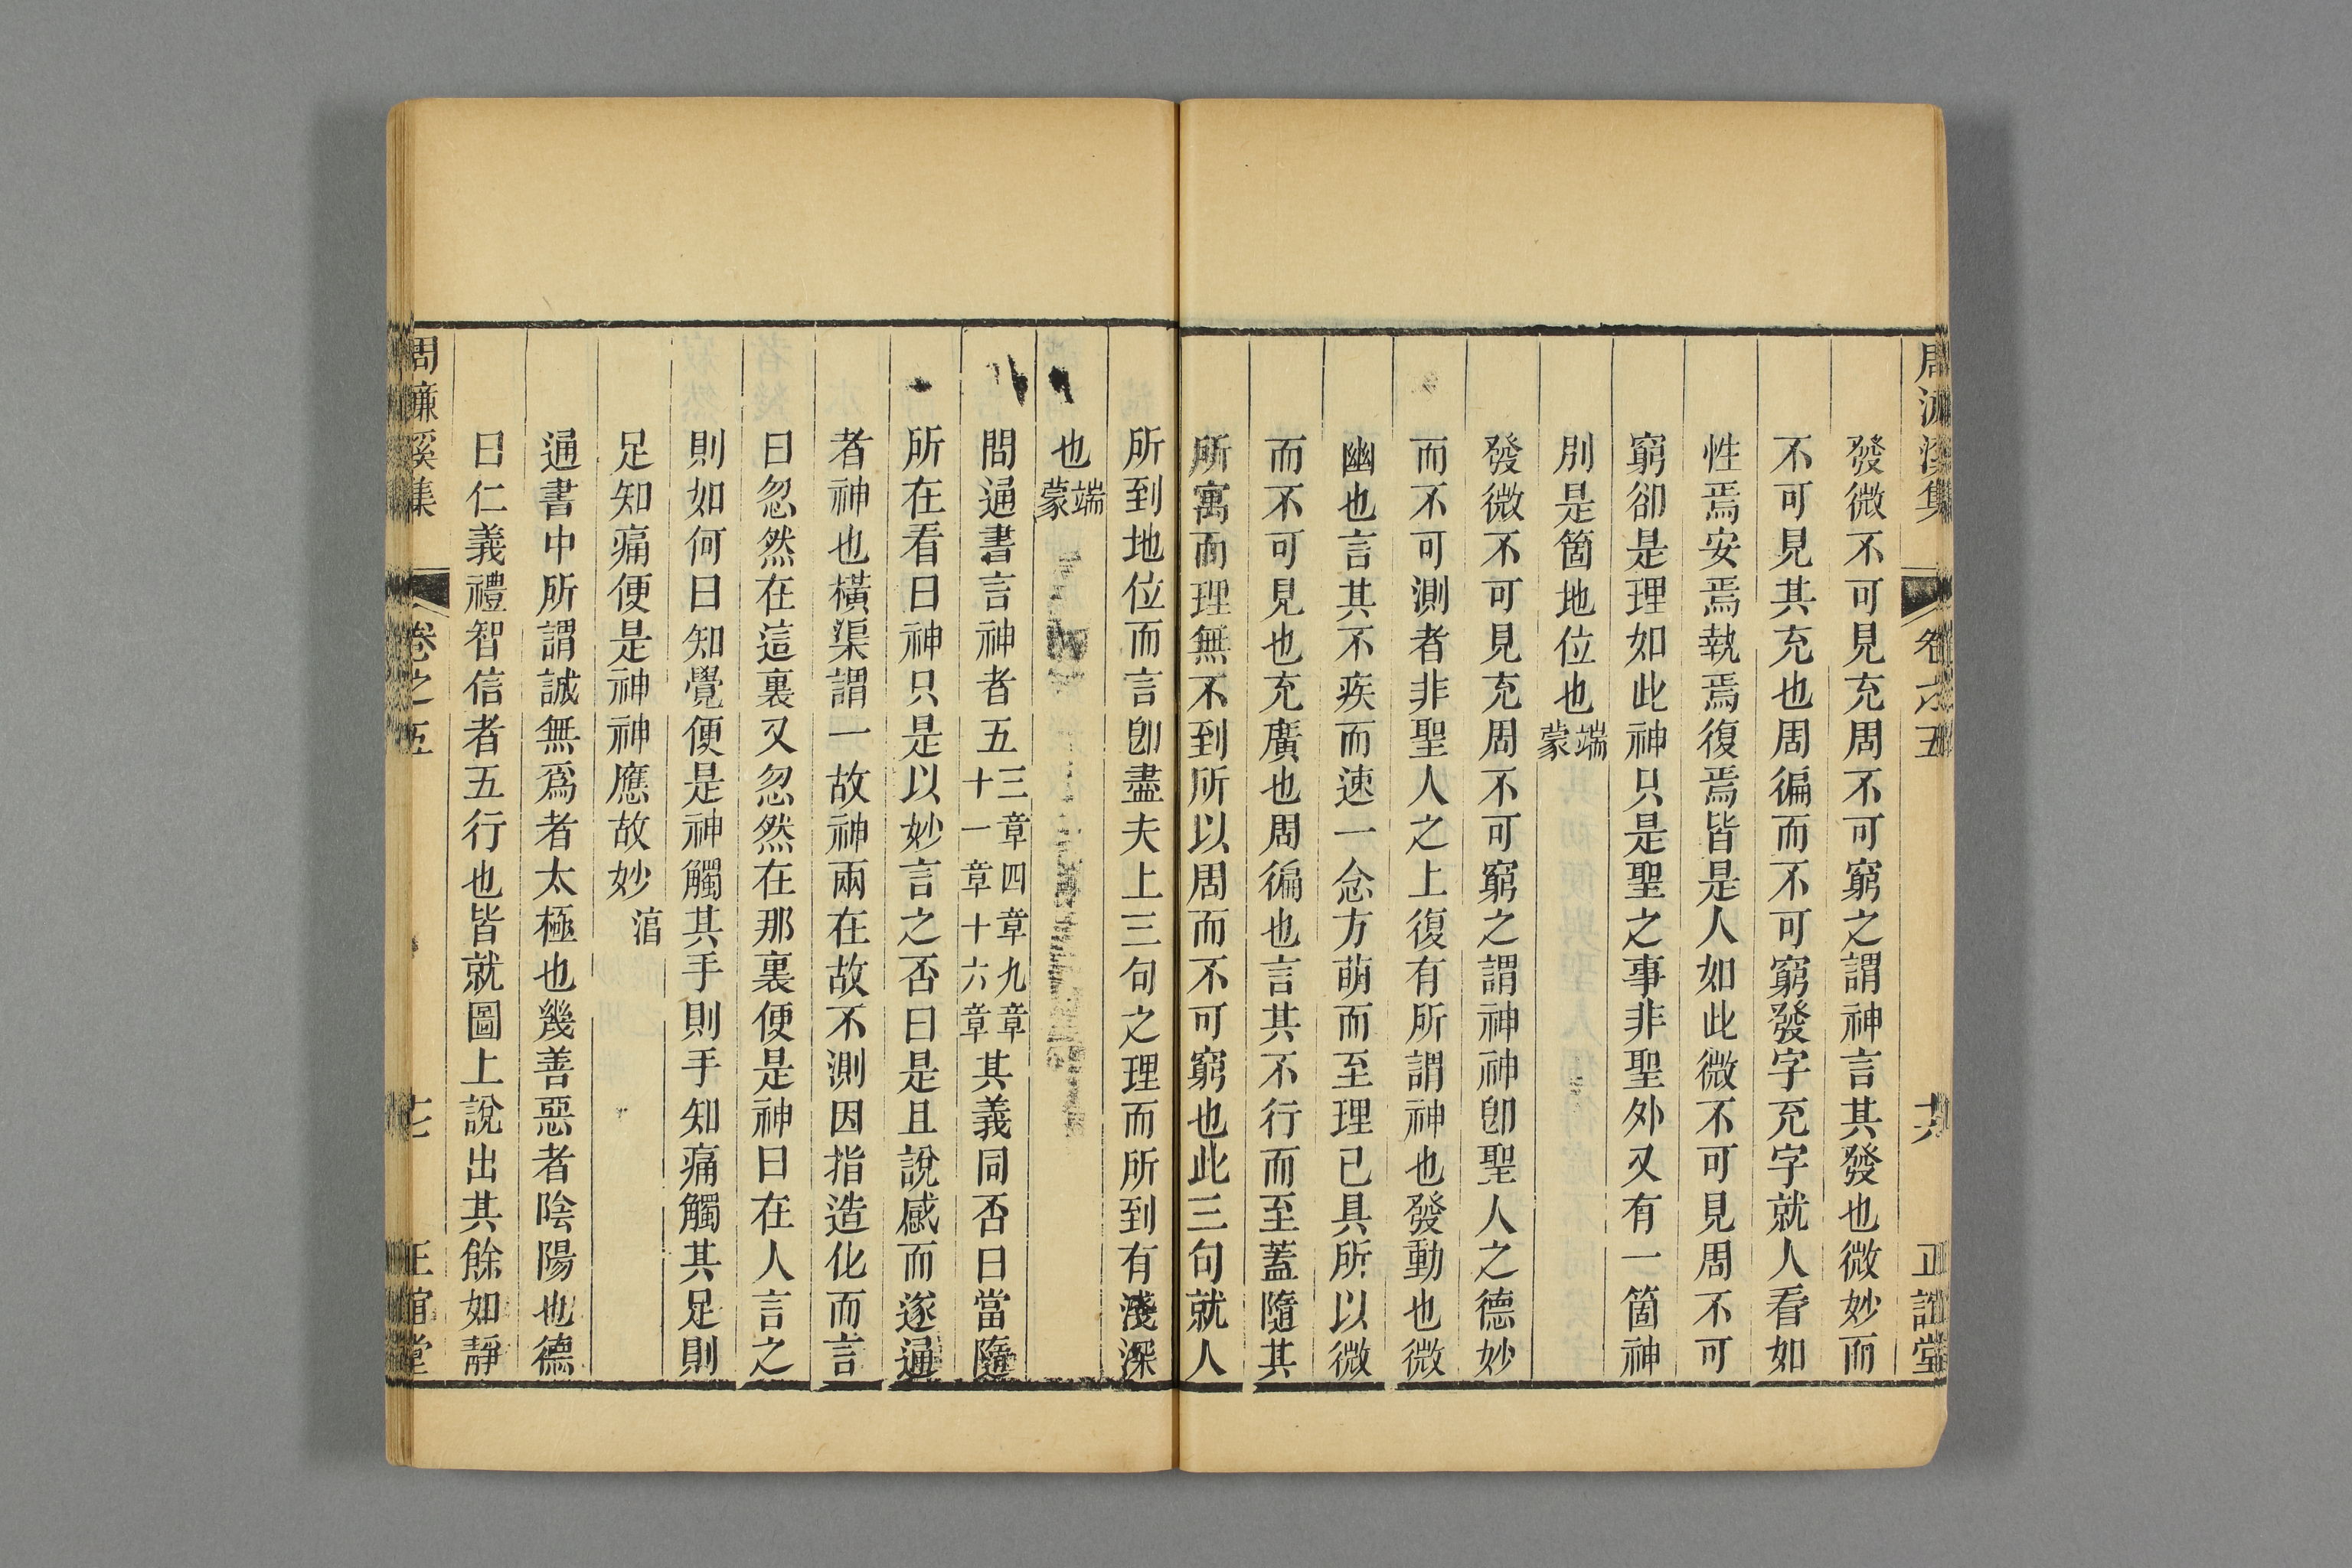 周濂溪集 卷之五 十六 正誼堂
發微不可見充周不可窮之謂神言其發也微妙而
不可見其充也周徧而不可窮發字充字就人看如
性焉安焉執焉復焉皆是人如此微不可見周不可
窮卻是理如此神只是聖之事非聖外又有一箇神
別是箇地位也端蒙
發微不可見充周不可窮之謂神神卽聖人之德妙
而不可測者非聖人之上復有所謂神也發動也微
幽也言其不疾而速一念方萌而至理已具所以微
而不可見也充廣也周徧也言其不行而至蓋隨其
所寓而理無不到所以周而不可窮也此三句就人
所到地位而言卽盡夫上三句之理而所到有淺深
也端蒙
問通書言神者五三章四章九章十一章十六章其義同否曰當隨
所在看曰神只是以妙言之否曰是且說感而遂通
者神也橫渠謂一故神兩在故不測因指造化而言
曰忽然在這裏又忽然在那裏便是神曰在人言之
則如何曰知覺便是神觸其手則手知痛觸其足則
足知痛便是神神應故妙㳷
通書中所謂誠無爲者太極也幾善惡者陰陽也德
曰仁義禮智信者五行也皆就圖上說出其餘如靜
周濂溪集 卷之五 十七 正誼堂